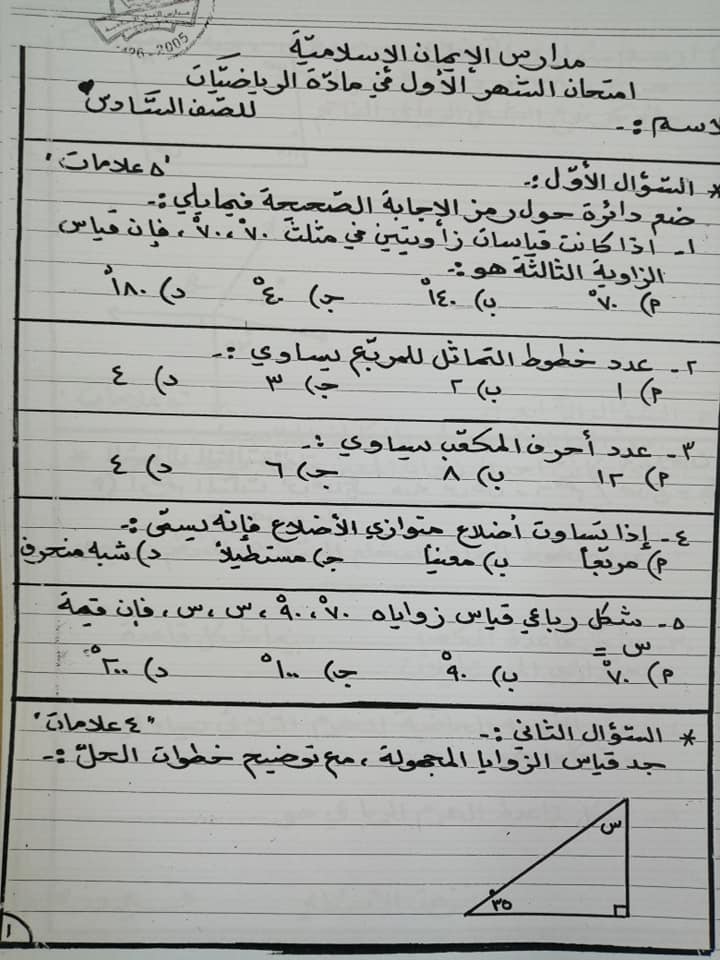 1426-2005
مدارس الإيمان الإسلاميّة
امتحان الشهر الأول في مادّة الرياضيّات
الاسم :- للصّف السّادس
* السّؤال الأوّل :- "٥ علامات"
ضع دائرة حول رمز الإجابة الصّحيحة فيما يلي :-
١- اذا كانت قياسات زاويتين في مثلث ٧٠°، ٧٠°، فإن قياس
الزاوية الثالثة هو :-
أ) ٧٠° ب) ١٤٠° جـ) ٤٠° د) ١٨٠°
٢- عدد خطوط التماثل للمربّع يساوي :-
أ) ١ ب) ٢ جـ) ٣ د) ٤
٣- عدد أحرف المكعّب يساوي :-
أ) ١٢ ب) ٨ جـ) ٦ د) ٤
٤- إذا تساوت أضلاع متوازي الأضلاع فإنه يسمّى :-
أ) مربّعاً ب) معيناً جـ) مستطيلاً د) شبه منحرف
٥- شكل رباعي قياس زواياه ٧٠°، ٩٠°، س، س، فإن قيمة
س =
أ) ٧٠° ب) ٩٠° جـ) ١٠٠° د) ٢٠٠°
* السّؤال الثاني :- "٤ علامات"
جد قياس الزوايا المجهولة، مع توضيح خطوات الحلّ :-
س
٣٥°
١